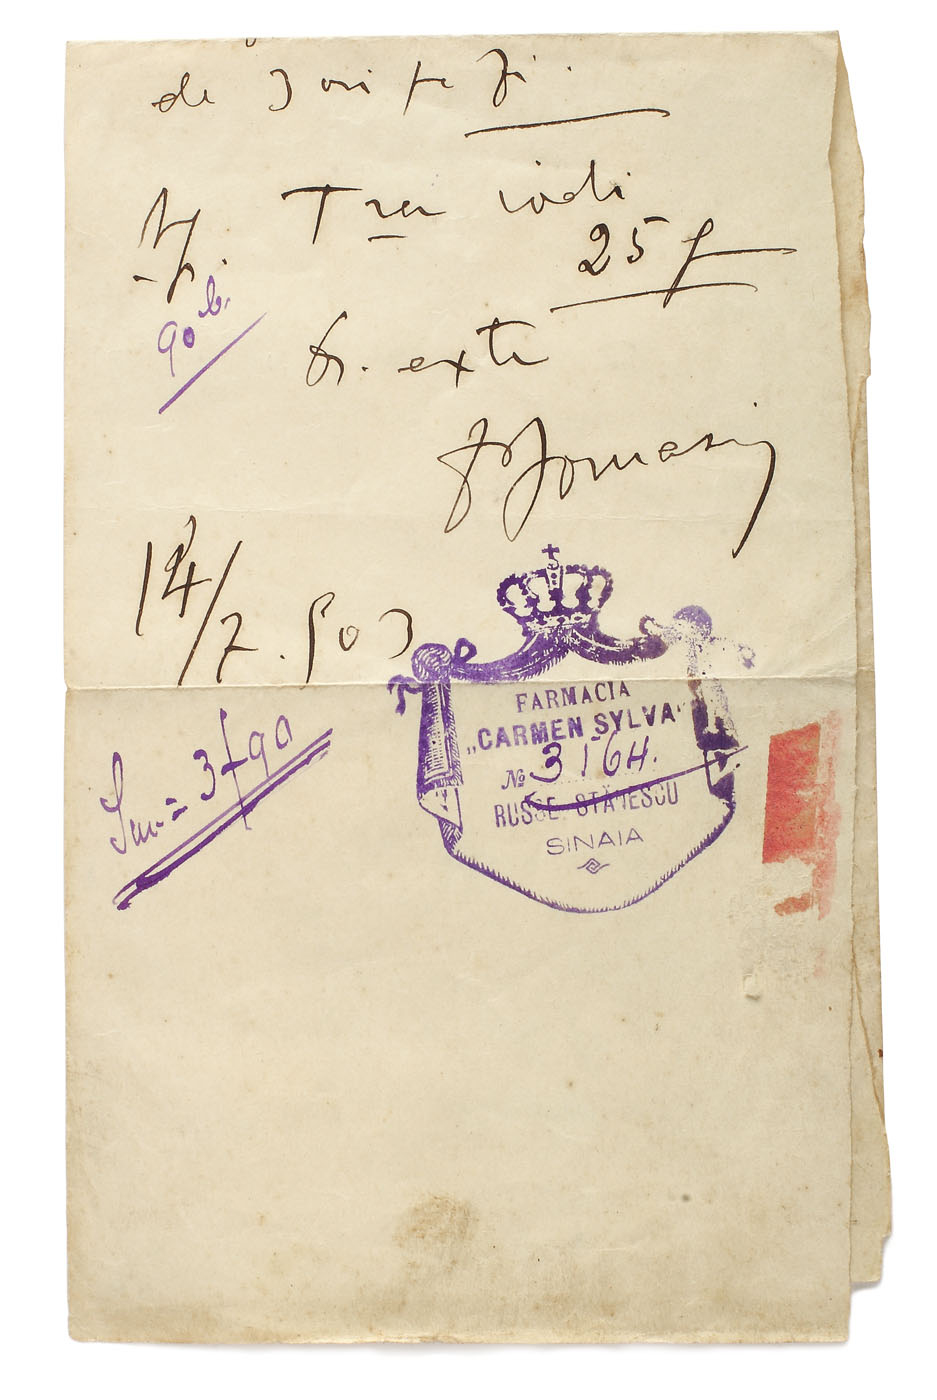 de 3 ori pe zi.
Tra iodi
25 f
90 b.
S. extr
14/7.903
3 f 90
FARMACIA
„CARMEN SYLVA”
№ 3164.
RUSSE STĂNESCU
SINAIA